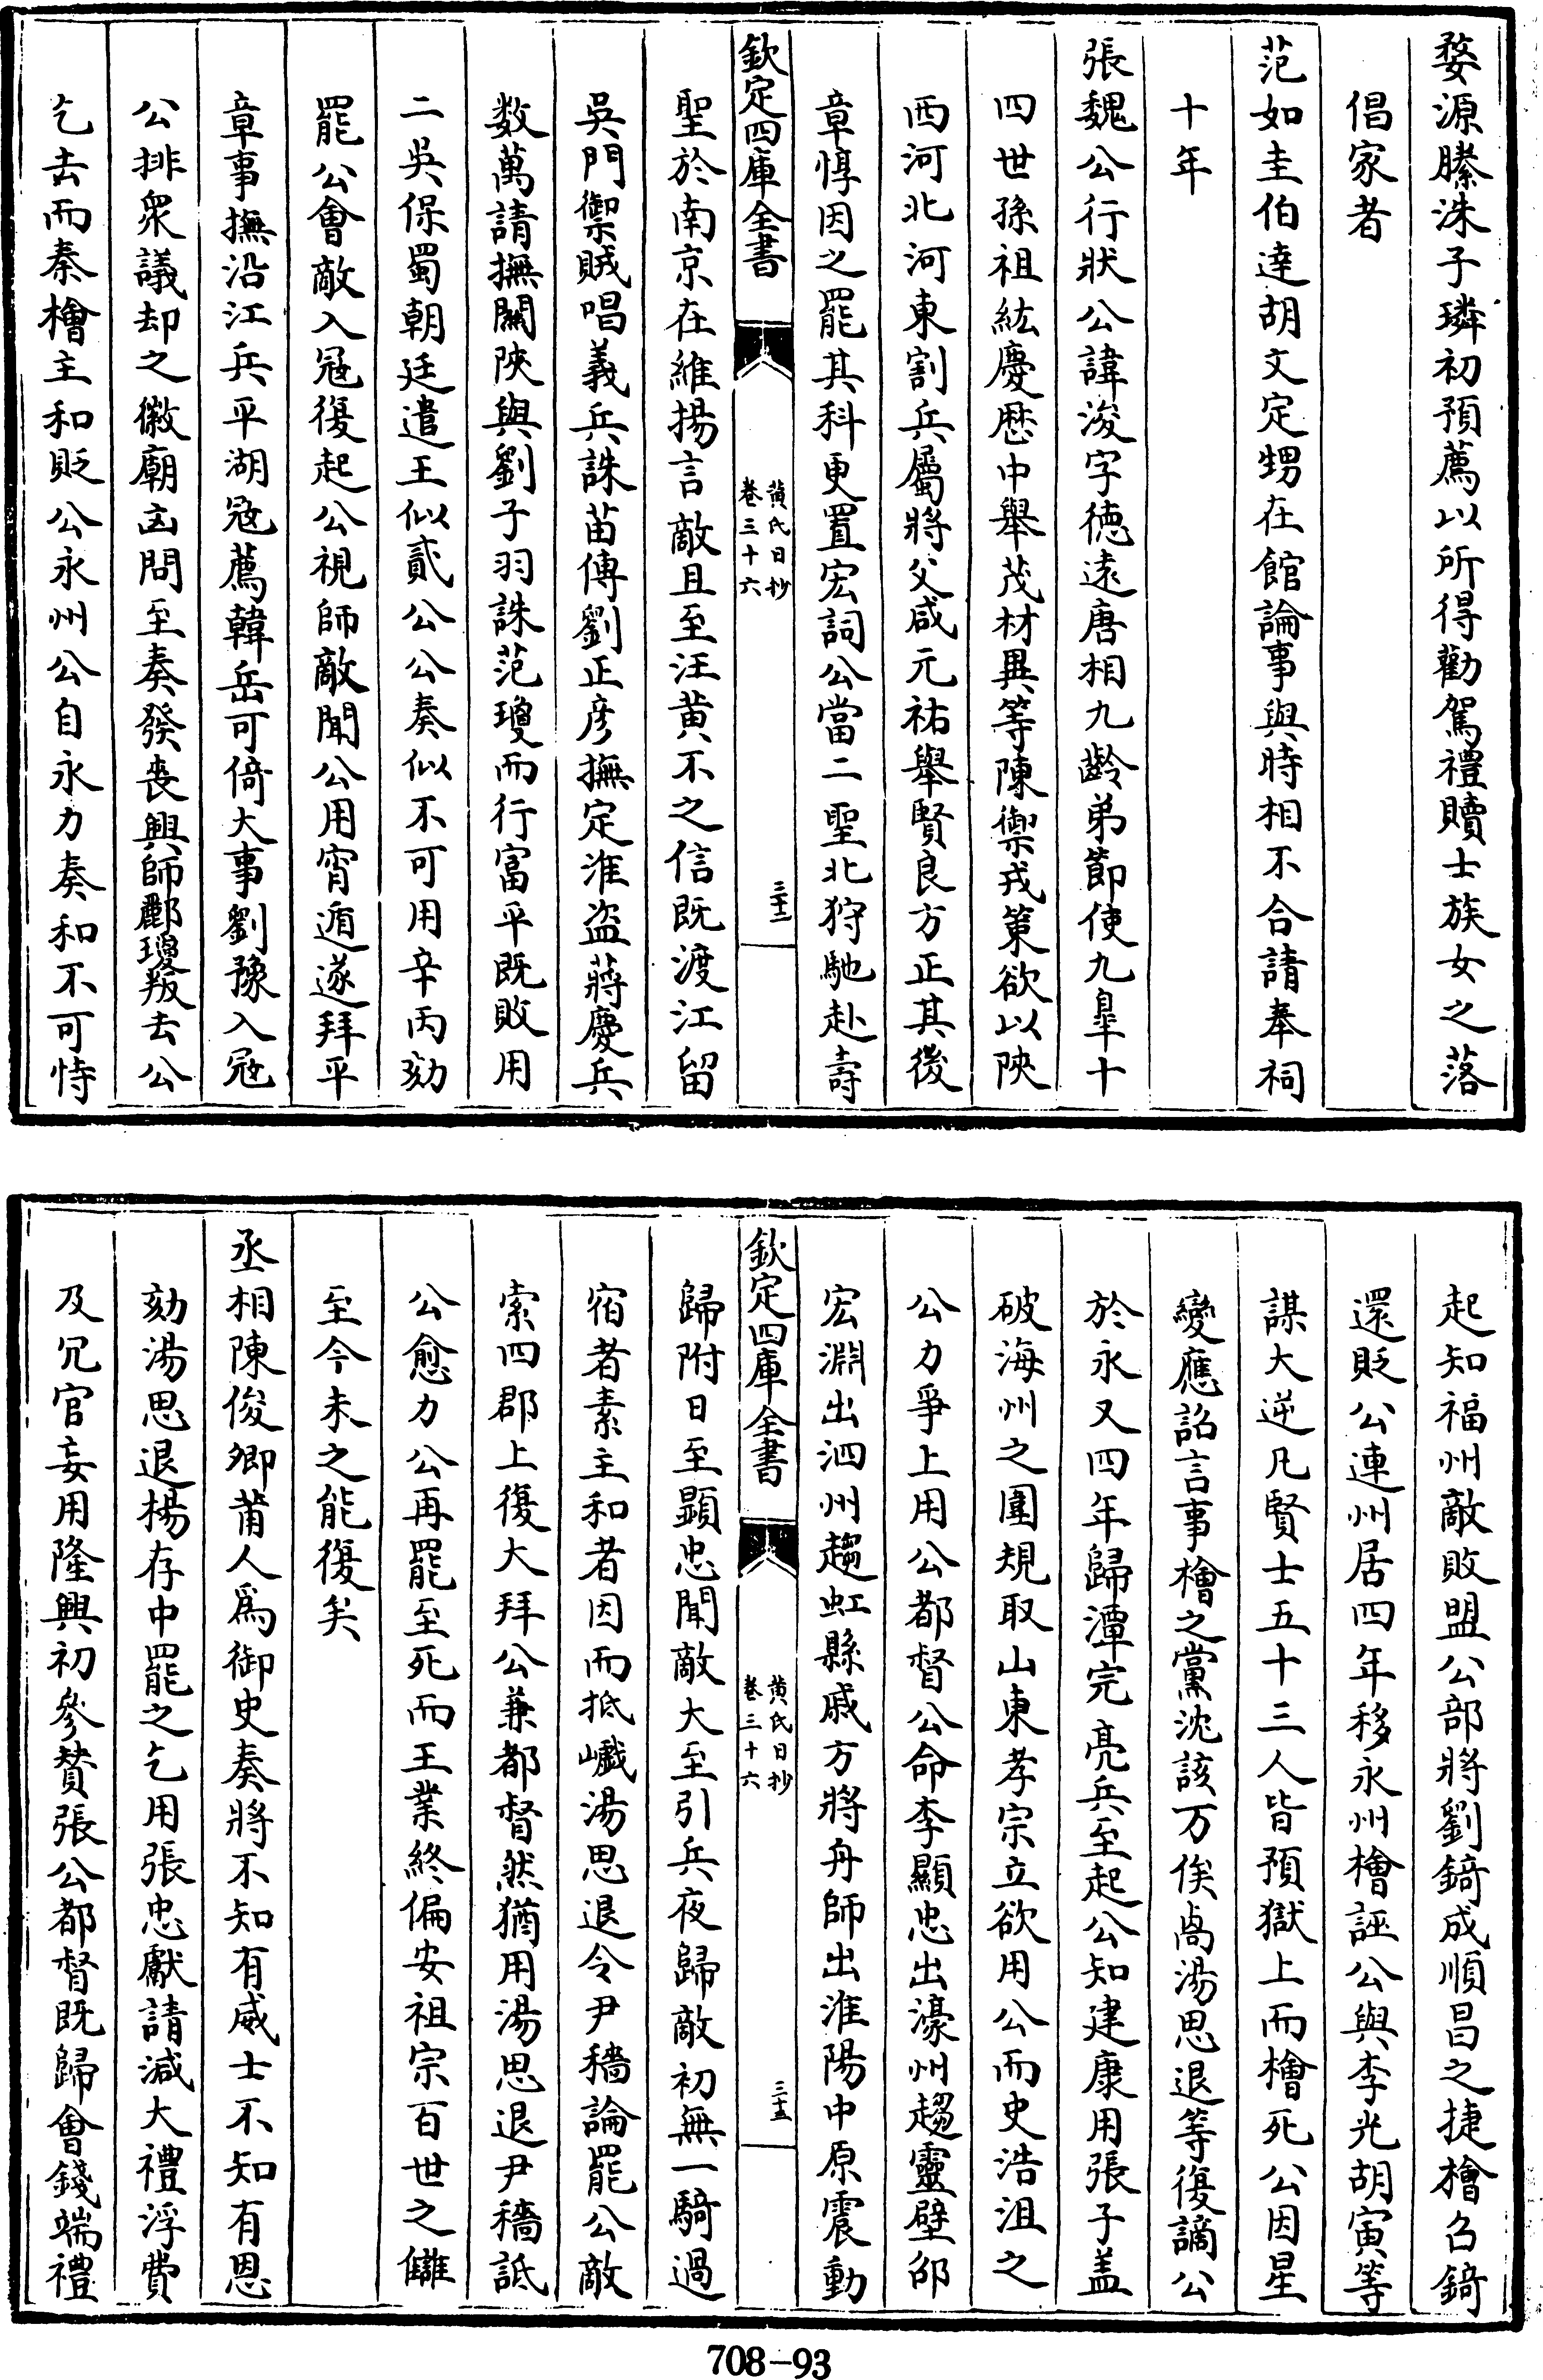 婺源滕洙子璘初預薦以所得勸駕禮贖士族女之落
倡家者
范如圭伯逹胡文定甥在館論事與時相不合請奉祠
十年
張魏公行狀公諱浚字徳遠唐相九齡弟節使九皐十
四世孫祖紘慶厯中舉茂材異等陳禦戎策欲以陜
西河北河東割兵屬將父咸元祐舉賢良方正其後
章惇因之罷其科更置宏詞公當二聖北狩馳赴壽
欽定四庫全書
黄氏日抄
卷三十六
三十二
聖於南京在維揚言敵且至汪黄不之信既渡江留
吳門禦賊唱義兵誅苖傅劉正彦撫定淮盜薛慶兵
数萬請撫關陜與劉子羽誅范瓊而行富平既敗用
二吳保蜀朝廷遣王似貳公公奏似不可用辛丙劾
罷公會敵入冦復起公視師敵聞公用宵遁遂拜平
章事撫沿江兵平湖冦薦韓岳可倚大事劉豫入冦
公排衆議却之徽廟㓙問至奏發喪興師酈瓊叛去公
乞去而秦檜主和貶公永州公自永力奏和不可恃
起知福州敵敗盟公部將劉錡成順昌之捷檜召錡
還貶公連州居四年移永州檜誣公與李光胡寅等
謀大逆凡賢士五十三人皆預獄上而檜死公因星
變應詔言事檜之黨沈該万俟卨湯思退等復謫公
於永又四年歸潭完亮兵至起公知建康用張子盖
破海州之圍規取山東孝宗立欲用公而史浩沮之
公力爭上用公都督公命李顯忠出濠州趨靈壁邵
宏淵出泗州趨虹縣戚方將舟師出淮陽中原震動
欽定四庫全書
黄氏日抄
卷三十六
三十三
歸附日至顯忠聞敵大至引兵夜歸敵初無一騎過
宿者素主和者因而抵巇湯思退令尹穡論罷公敵
索四郡上復大拜公兼都督然猶用湯思退尹穡詆
公愈力公再罷至死而王業終偏安祖宗百世之讎
至今未之能復矣
丞相陳俊卿莆人爲御史奏將不知有威士不知有恩
劾湯思退楊存中罷之乞用張忠獻請減大禮浮費
及冗官妄用隆興初參賛張公都督既歸會錢端禮
708-93